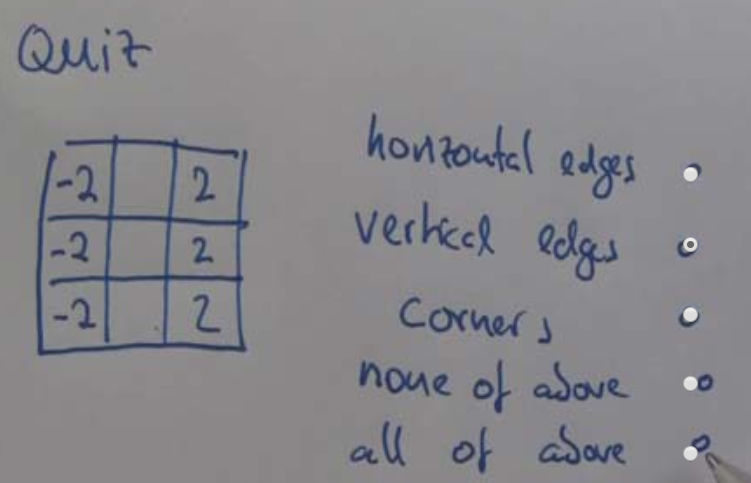 Quiz
-2 2
-2 2
-2 2
horizontal edges
vertical edges
corners
none of above
all of above